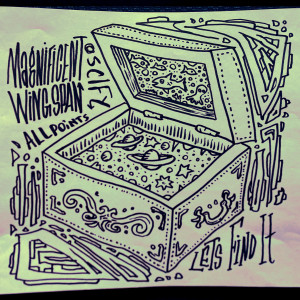 MAGNIFICENT
WINGSPAN
ALL POINTS
LETS FIND IT